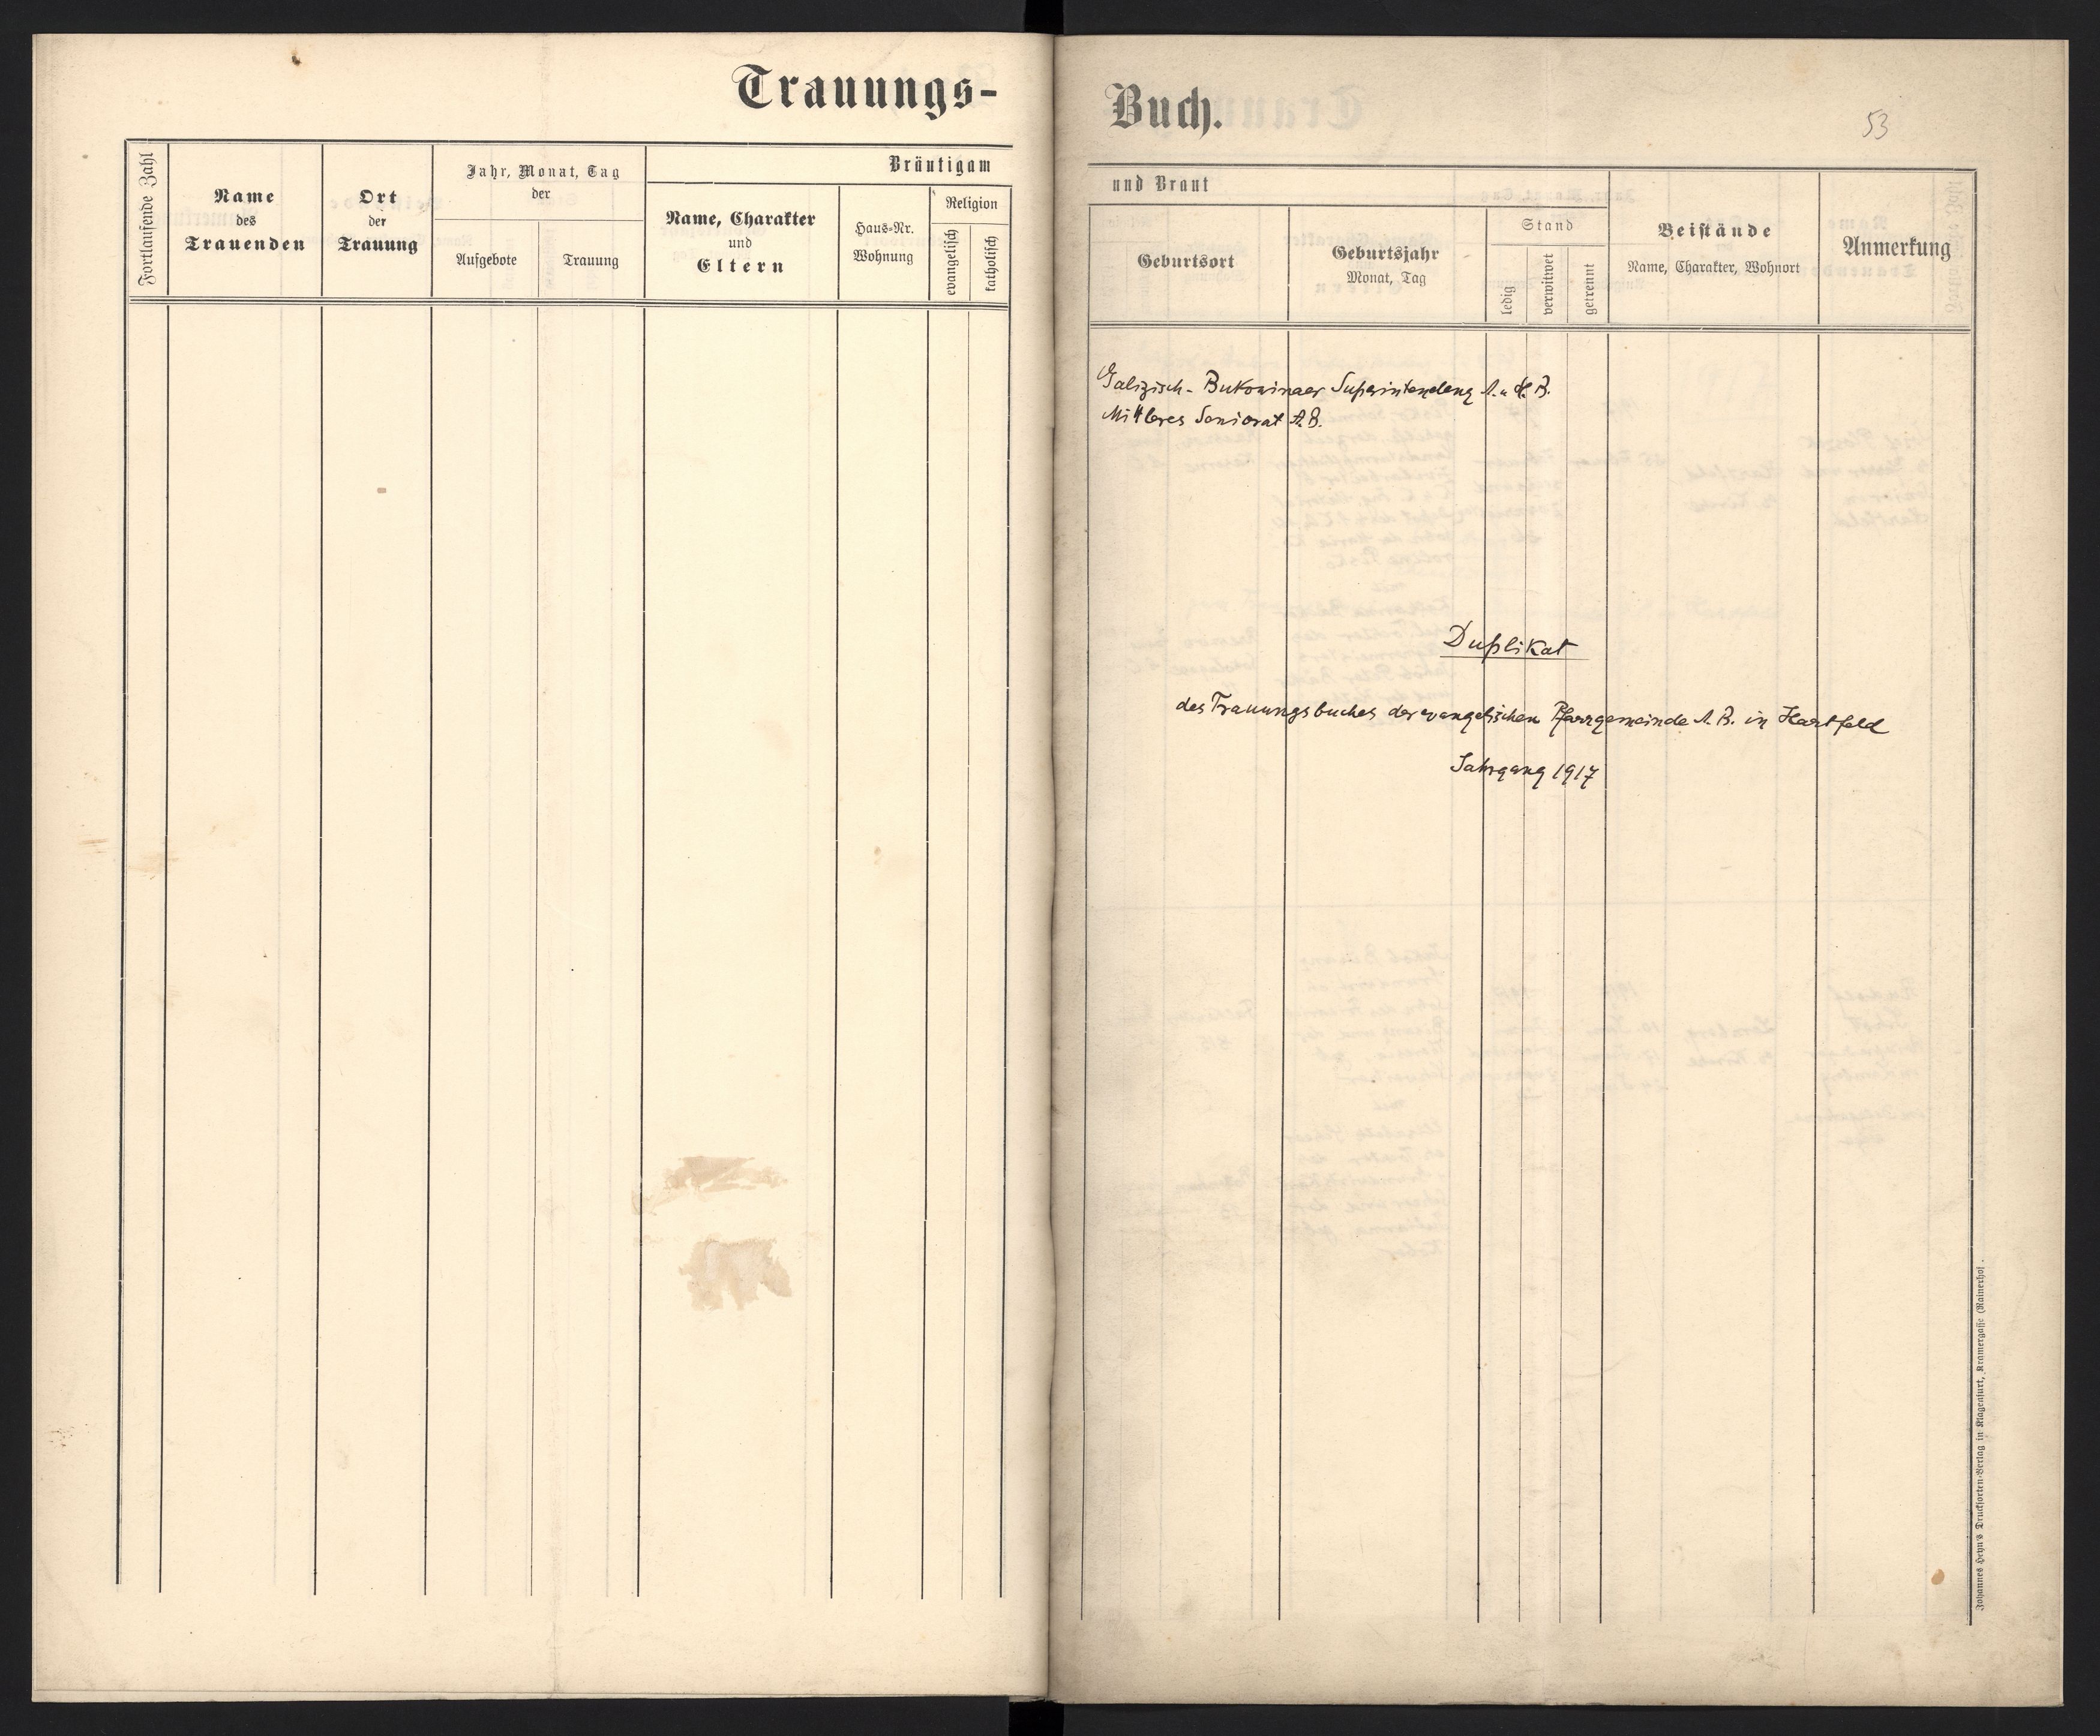 Trauungs-
Fortlaufende Zahl
Name
des
Trauenden
Ort
der
Trauung
Jahr, Monat, Tag
der
Aufgebote
Trauung
Bräutigam
Name, Charakter
und
Eltern
Haus-Nr.
Wohnung
Religion
evangelisch
katholisch
Buch.
53
und Braut
Geburtsort
Geburtsjahr
Monat, Tag
Stand
ledig
verwitwet
getrennt
Beistände
Name, Charakter, Wohnort
Anmerkung
Galizisch-Bukowinaer Superintendenz A. u. H. B.
Mittleres Seniorat A.B.
Duplikat
des Trauungsbuches der evangelischen Pfarrgemeinde A. B. in Hartfeld
Jahrgang 1917
Johannes Heyn's Drucksorten-Verlag in Klagenfurt, Kramergasse (Rainerhof).